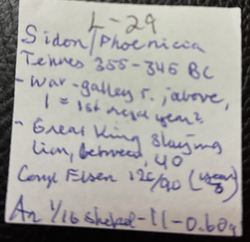 L-29
Sidon/Phoenicia
Tennes 355-345 BC
- War-galley r., above,
1 = 1st regal year?
- Great King slaying
lion, between, 40
Conf Elsen 126/90 (year 3
An 1/16 shekel-11-0.60g